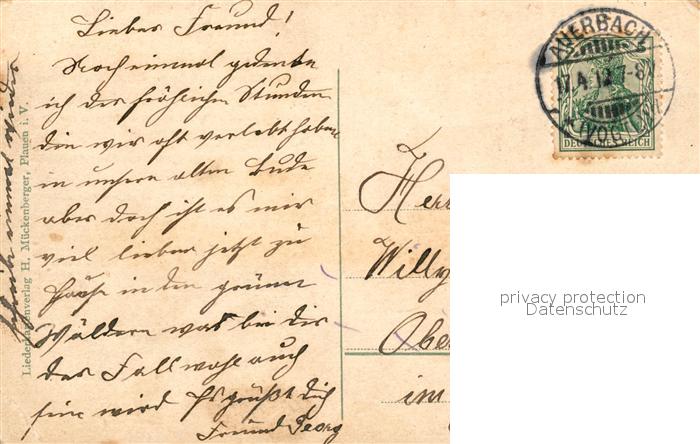 Lieber Freund!
Noch einmal gedenke
ich der fröhlichen Stunden
die wir oft verlebt haben
in unsere alten Bude
aber doch ist es mir
viel lieber jetzt zu
Hause in den grünen
Wäldern was bei dir
der Fall wohl auch
sein wird Es grüßt dich
Freund Georg
schreib einmal wieder
Liederkartenverlag H. Mückenberger, Plauen i. V.
AUERBACH
17.4.12 7-8
(VOGTL)
DEUTSCHES REICH
Herr
Willy
Obe
im
privacy protection
Datenschutz